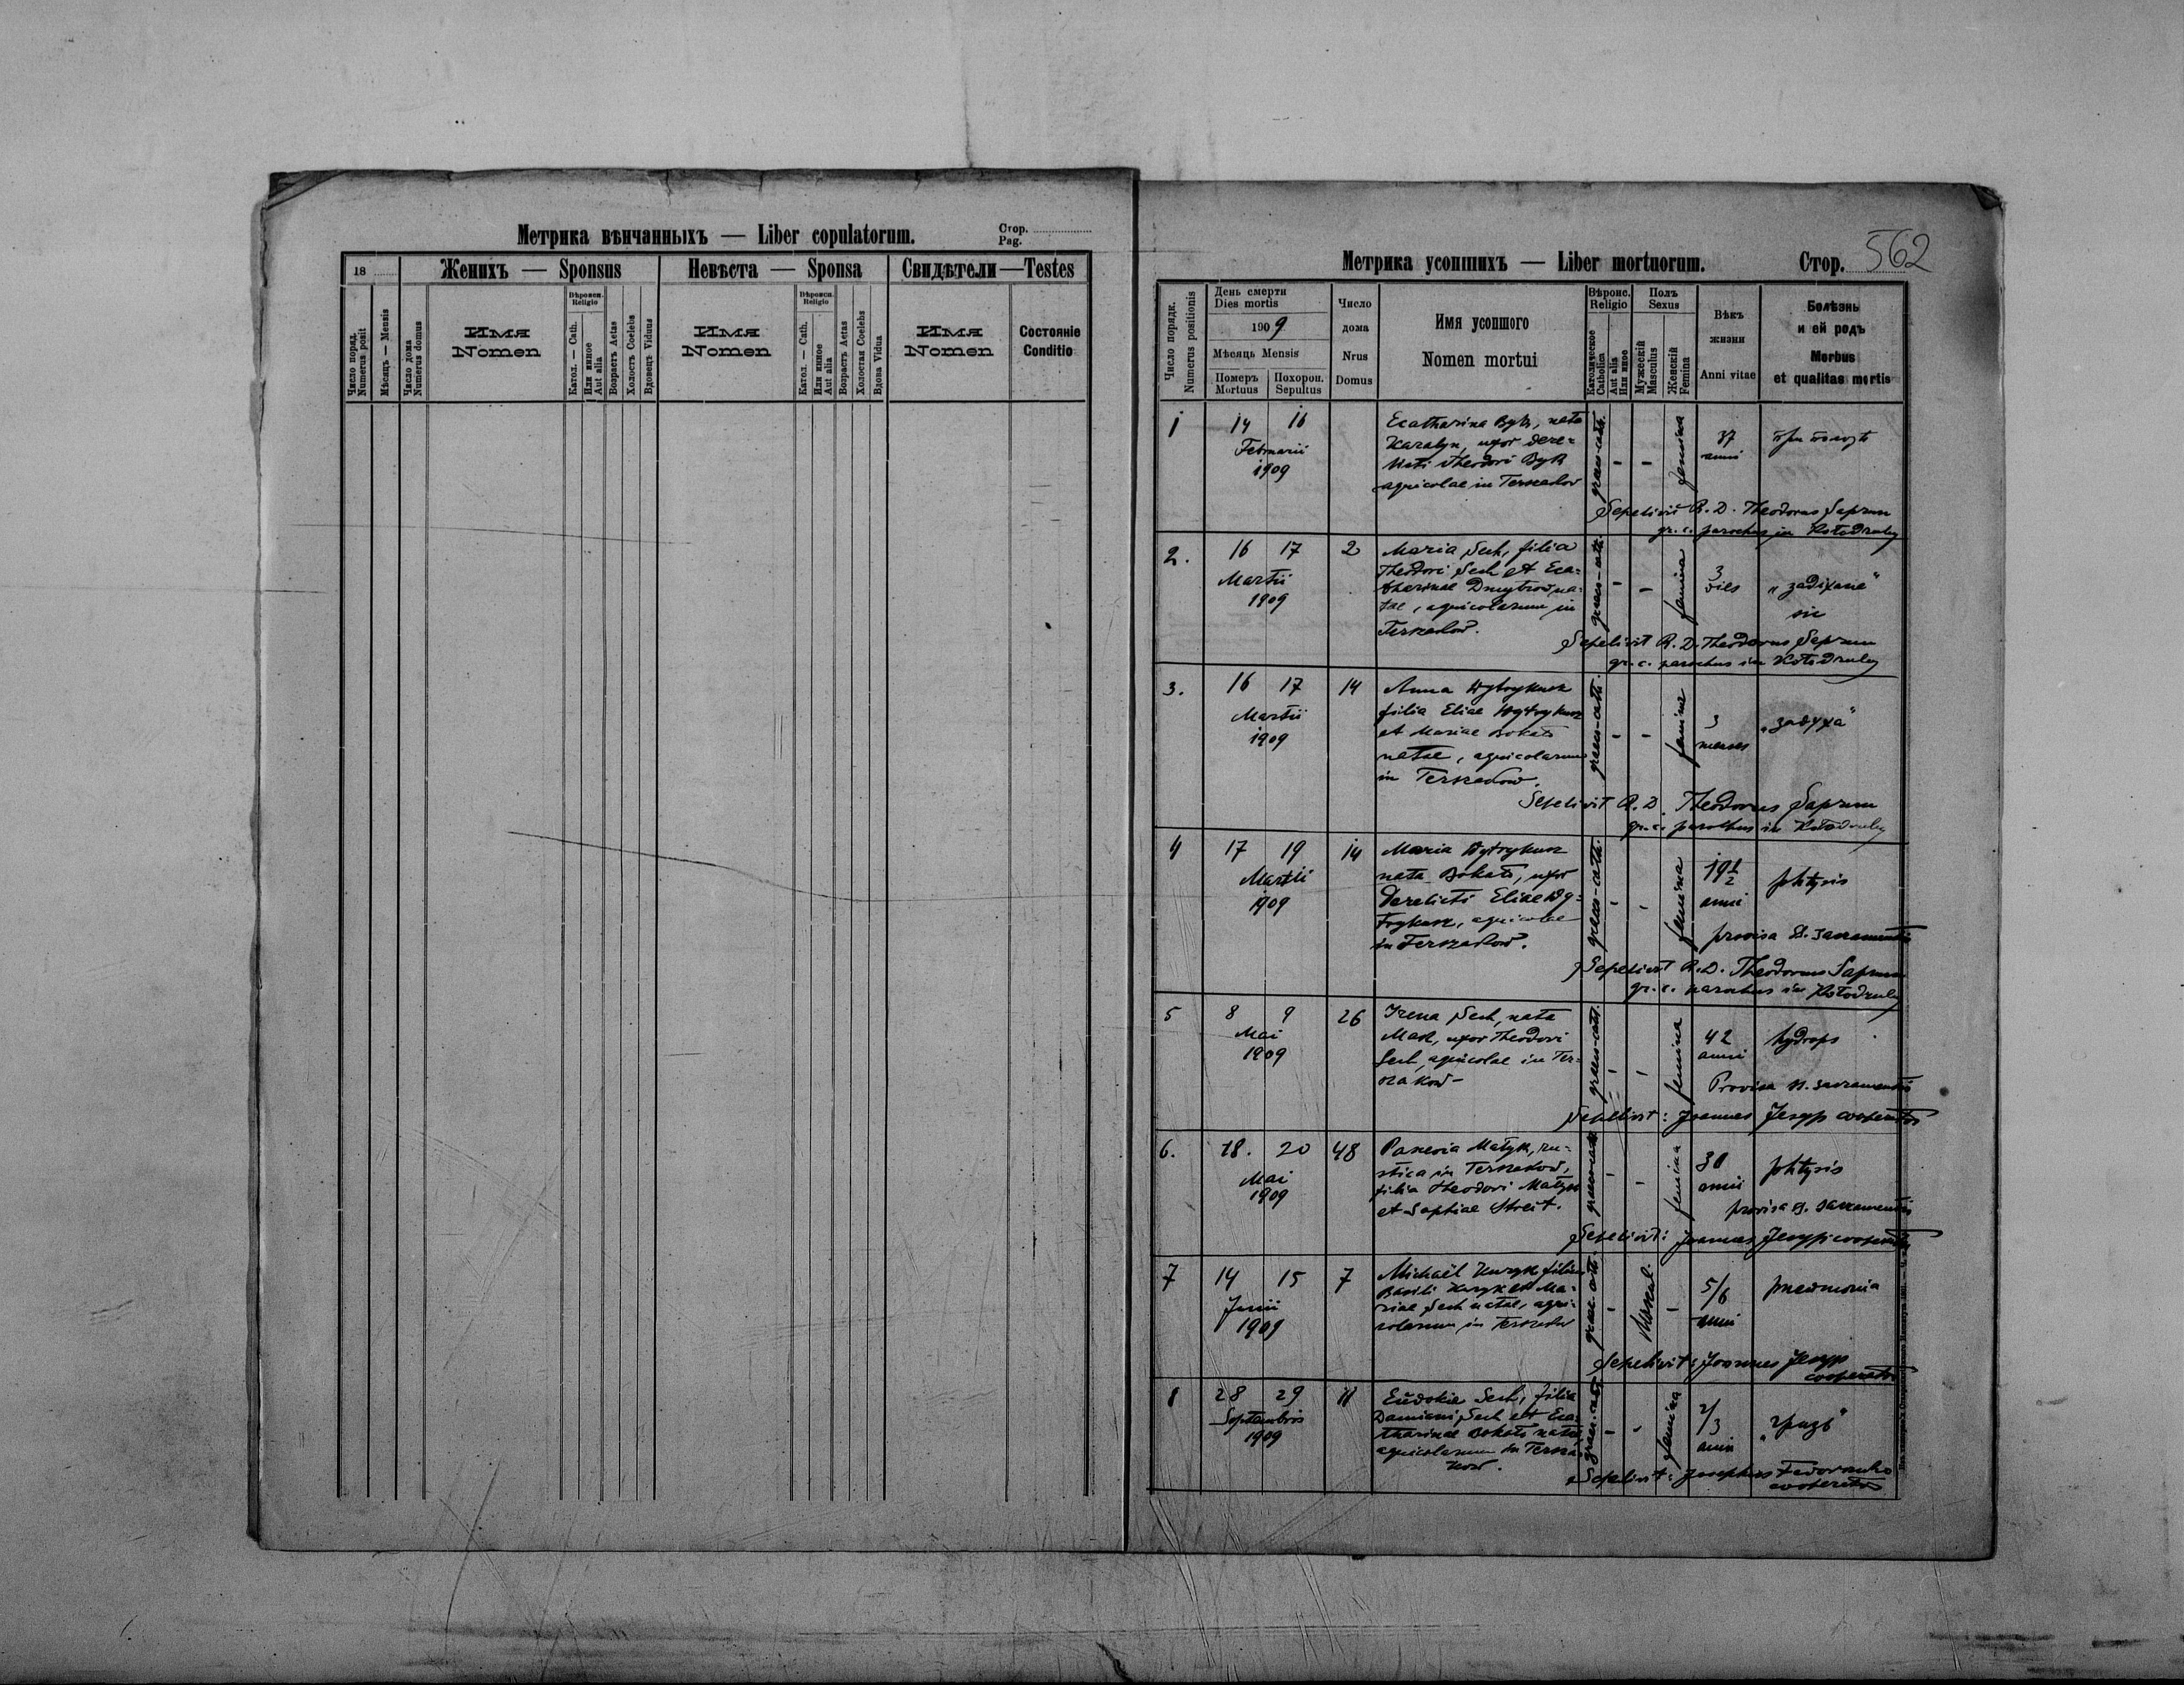 Метрика вѣнчанныхъ — Liber copulatorum.
Стор.
Pag.
18
Женихъ — Sponsus
Невѣста — Sponsa
Свидѣтели — Testes
Число поряд.
Numerus posit
Мѣсяцъ — Mensis
Число дома
Numerus domus
Имя
Nomen
Вѣроисп.
Religio
Катол. — Cath.
Или иное
Aut alia
Возрастъ Aetas
Холостъ Coelebs
Вдовецъ Viduus
Имя
Nomen
Вѣроисп.
Religio
Катол. — Cath.
Или иное
Aut alia
Возрастъ Aetas
Холостая Coelebs
Вдова Vidua
Имя
Nomen
Состоянiе
Conditio
Метрика усопшихъ — Liber mortuorum.
Стор. 562
Число порядк.
Numerus positionis
День смерти
Dies mortis
1909
Мѣсяць Mensis
Померъ
Mortuus
Похорон.
Sepultus
Число
дома
Nrus
Domus
Имя усопшого
Nomen mortui
Вѣроис.
Religio
Католическое
Catholica
Aut alia
Или иное
Полъ
Sexus
Мужескій
Masculus
Женскій
Femina
Вѣкъ
жизни
Anni vitae
Болѣзнь
и ей родъ
Morbus
et qualitas mortis
1 14 16
Februarii
1909
Ecatharina Byk, nata
uxor dere=
licti Theodori Byk
agricolae in Terszakow
graec-cath. - - femina
37
anni
Sepelivit R. D. Theodorus Saprun
gr. c. parochus in Kołodruby
2. 16 17 2
Martii
1909
Maria Sech, filia
Theodori Sech et Eca=
tharinae Dmytrow na=
tae, agricolarum in
Terszakow.
graec-cath. - - femina
3
dies
"задіханє"
sic
Sepelivit R. D. Theodorus Saprun
gr. c. parochus in Kołodruby
3. 16 17 14
Martii
1909
Anna Wytrykusz
filia Eliae Wytrykusz
et Mariae Bokało
natae, agricolarum
in Terszakow.
graec-cath. - - femina
3
menses
"задуха"
Sepelivit R. D. Theodorus Saprun
gr. c. parochus in Kołodruby
4 17 19 14
Martii
1909
Maria Wytrykusz
nata Bokało, uxor
derelicti Eliae Wy=
trykusz, agricolae
in Terszakow.
graec-cath. - - femina
19 1/2
anni
phtysis
provisa St. sacramentis
Sepelivit R. D. Theodorus Saprun
gr. c. parochus in Kołodruby
5 8 9 26
Mai
1909
Irena Sech, nata
uxor Theodori
Sech, agricolae in Ter=
szakow -
graec-cath. - - femina
42
anni
hydrops
Provisa st. sacramentis
Sepelivit: Joannes Jesyp cooperator
6. 18. 20 48
Mai
1909
Matyk, ru=
stica in Terszakow,
filia Theodori Matyk
et Sophiae Streit.
graec-cath - - femina
30
anni
phtysis
provisa st. sacramentis
Sepelivit: Joannes Jesyp cooperator
7 14 15 7
Junii
1909
Michaël Kuzyk filius
Basili Kuzyk et Ma=
riae Sech natae, agri=
colarum in Terszakow
graec. cath. - Maskul. -
5/6
anni
pneumonia
Sepelivit: Joannes Jesyp
cooperator
8 28 29 11
Septembris
1909
Eudokia Sech, filia
Damiani Sech et Eca=
tharinae Bokało natae
agricolarum in Tersza=
kow.
graec. cath. - - femina
2/3
anni
Sepelivit: Josephus Fedorenko
cooperator